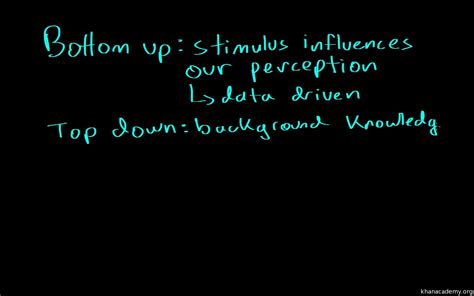 Bottom up: stimulus influences
our perception
↳ data driven
Top down: background knowledg
khanacademy.org